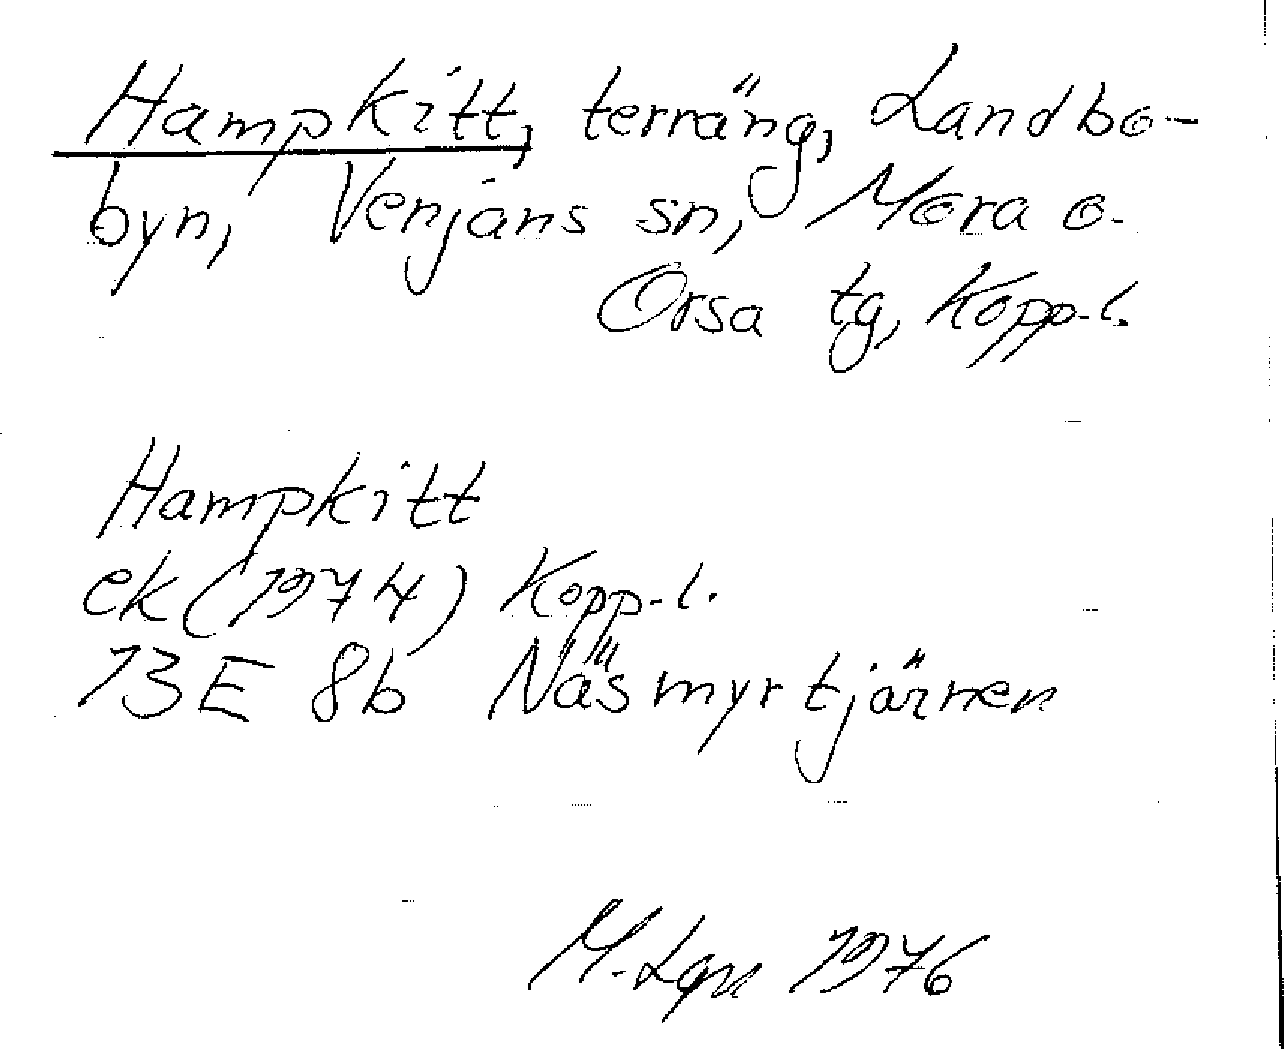 Hampkitt, terräng, Landbo-
byn, Venjans sn, Mora o.
Orsa tg, Kopp.l.
Hampkitt
ek (1974) Kopp.l.
13E 8b Näsmyrtjärnen
M. 1976